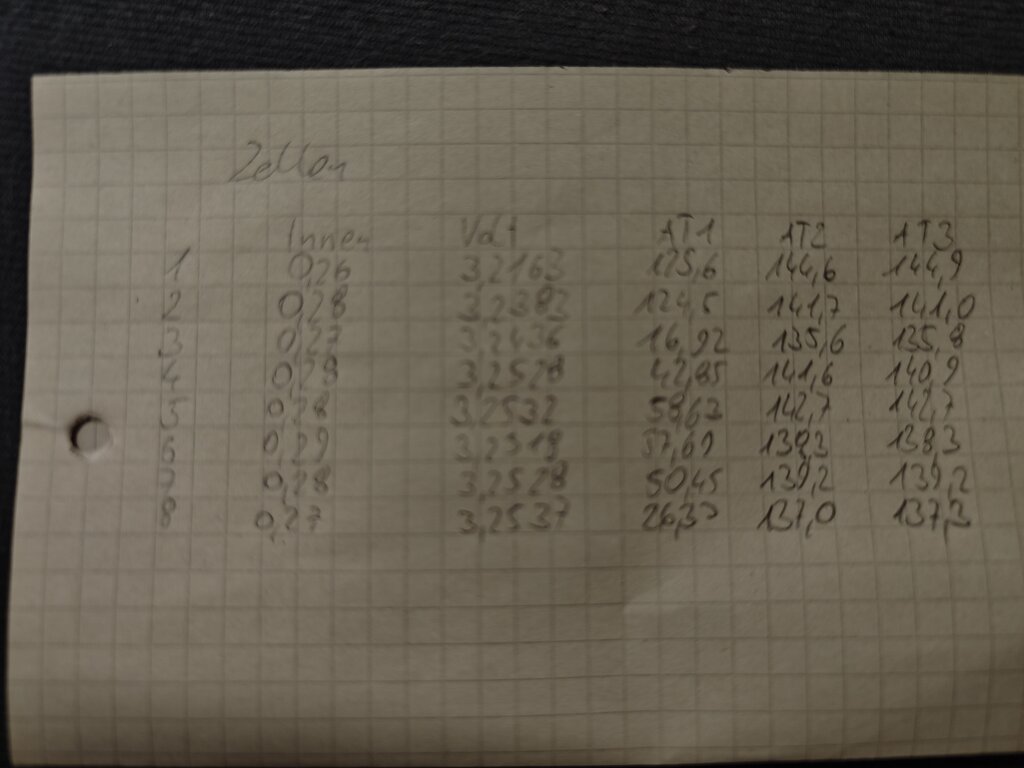 Zellen
Innen Volt AT1 AT2 AT3
1 0,26 3,2163 125,6 144,6 144,9
2 0,28 124,5 141,7 141,0
3 0,27 3,2436 16,92 135,6 135,8
4 3,2528 42,85 141,6 140,9
5 0,28 3,2532 58,62 142,7 142,7
6 0,29 3,2519 37,69 138,3
7 0,28 3,2528 50,45 139,2 139,2
8 0,27 3,2537 137,0 137,3